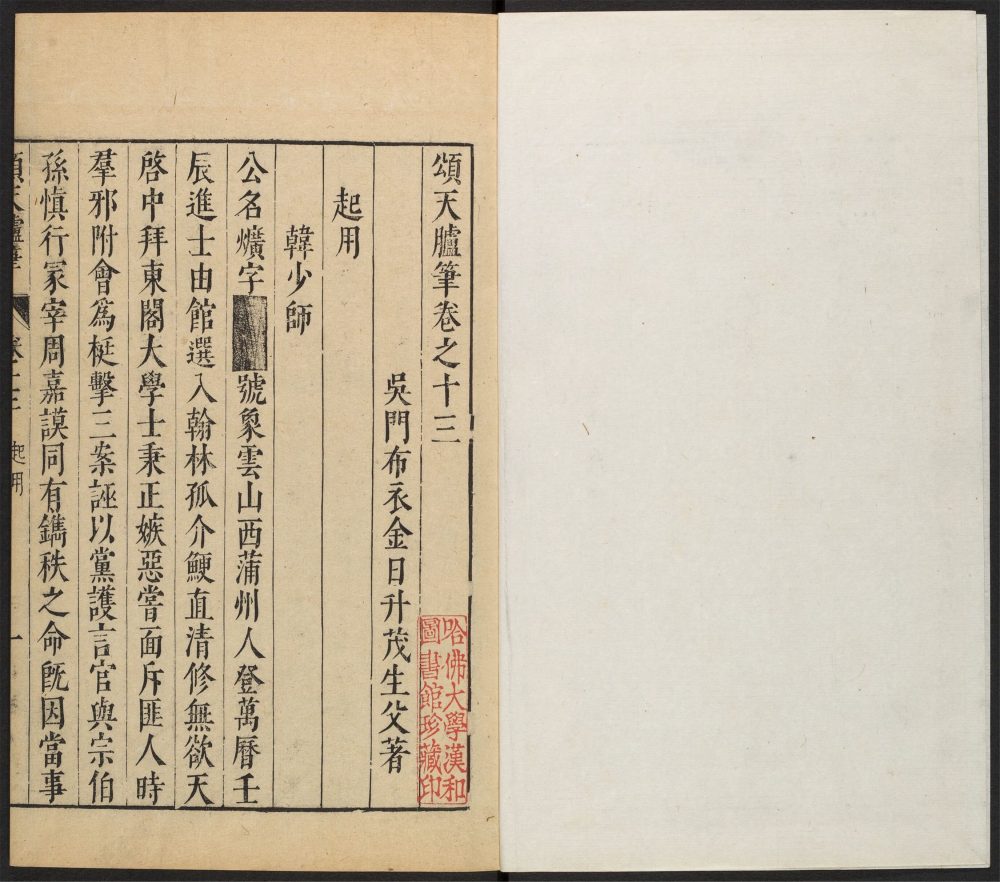 頌天臚筆卷之十三
吳門布衣金日升茂生父著
起用
韓少師
公名爌字號象雲山西蒲州人登萬曆壬
辰進士由館選入翰林孤介鯁直清修無欲天
啓中拜東閣大學士秉正嫉惡嘗面斥匪人時
羣邪附會爲梃擊三案誣以黨護言官與宗伯
孫愼行冢宰周嘉謨同有鐫秩之命旣因當事
頌天臚筆 卷十三 起用 一
哈佛大學漢和
圖書館珍藏印